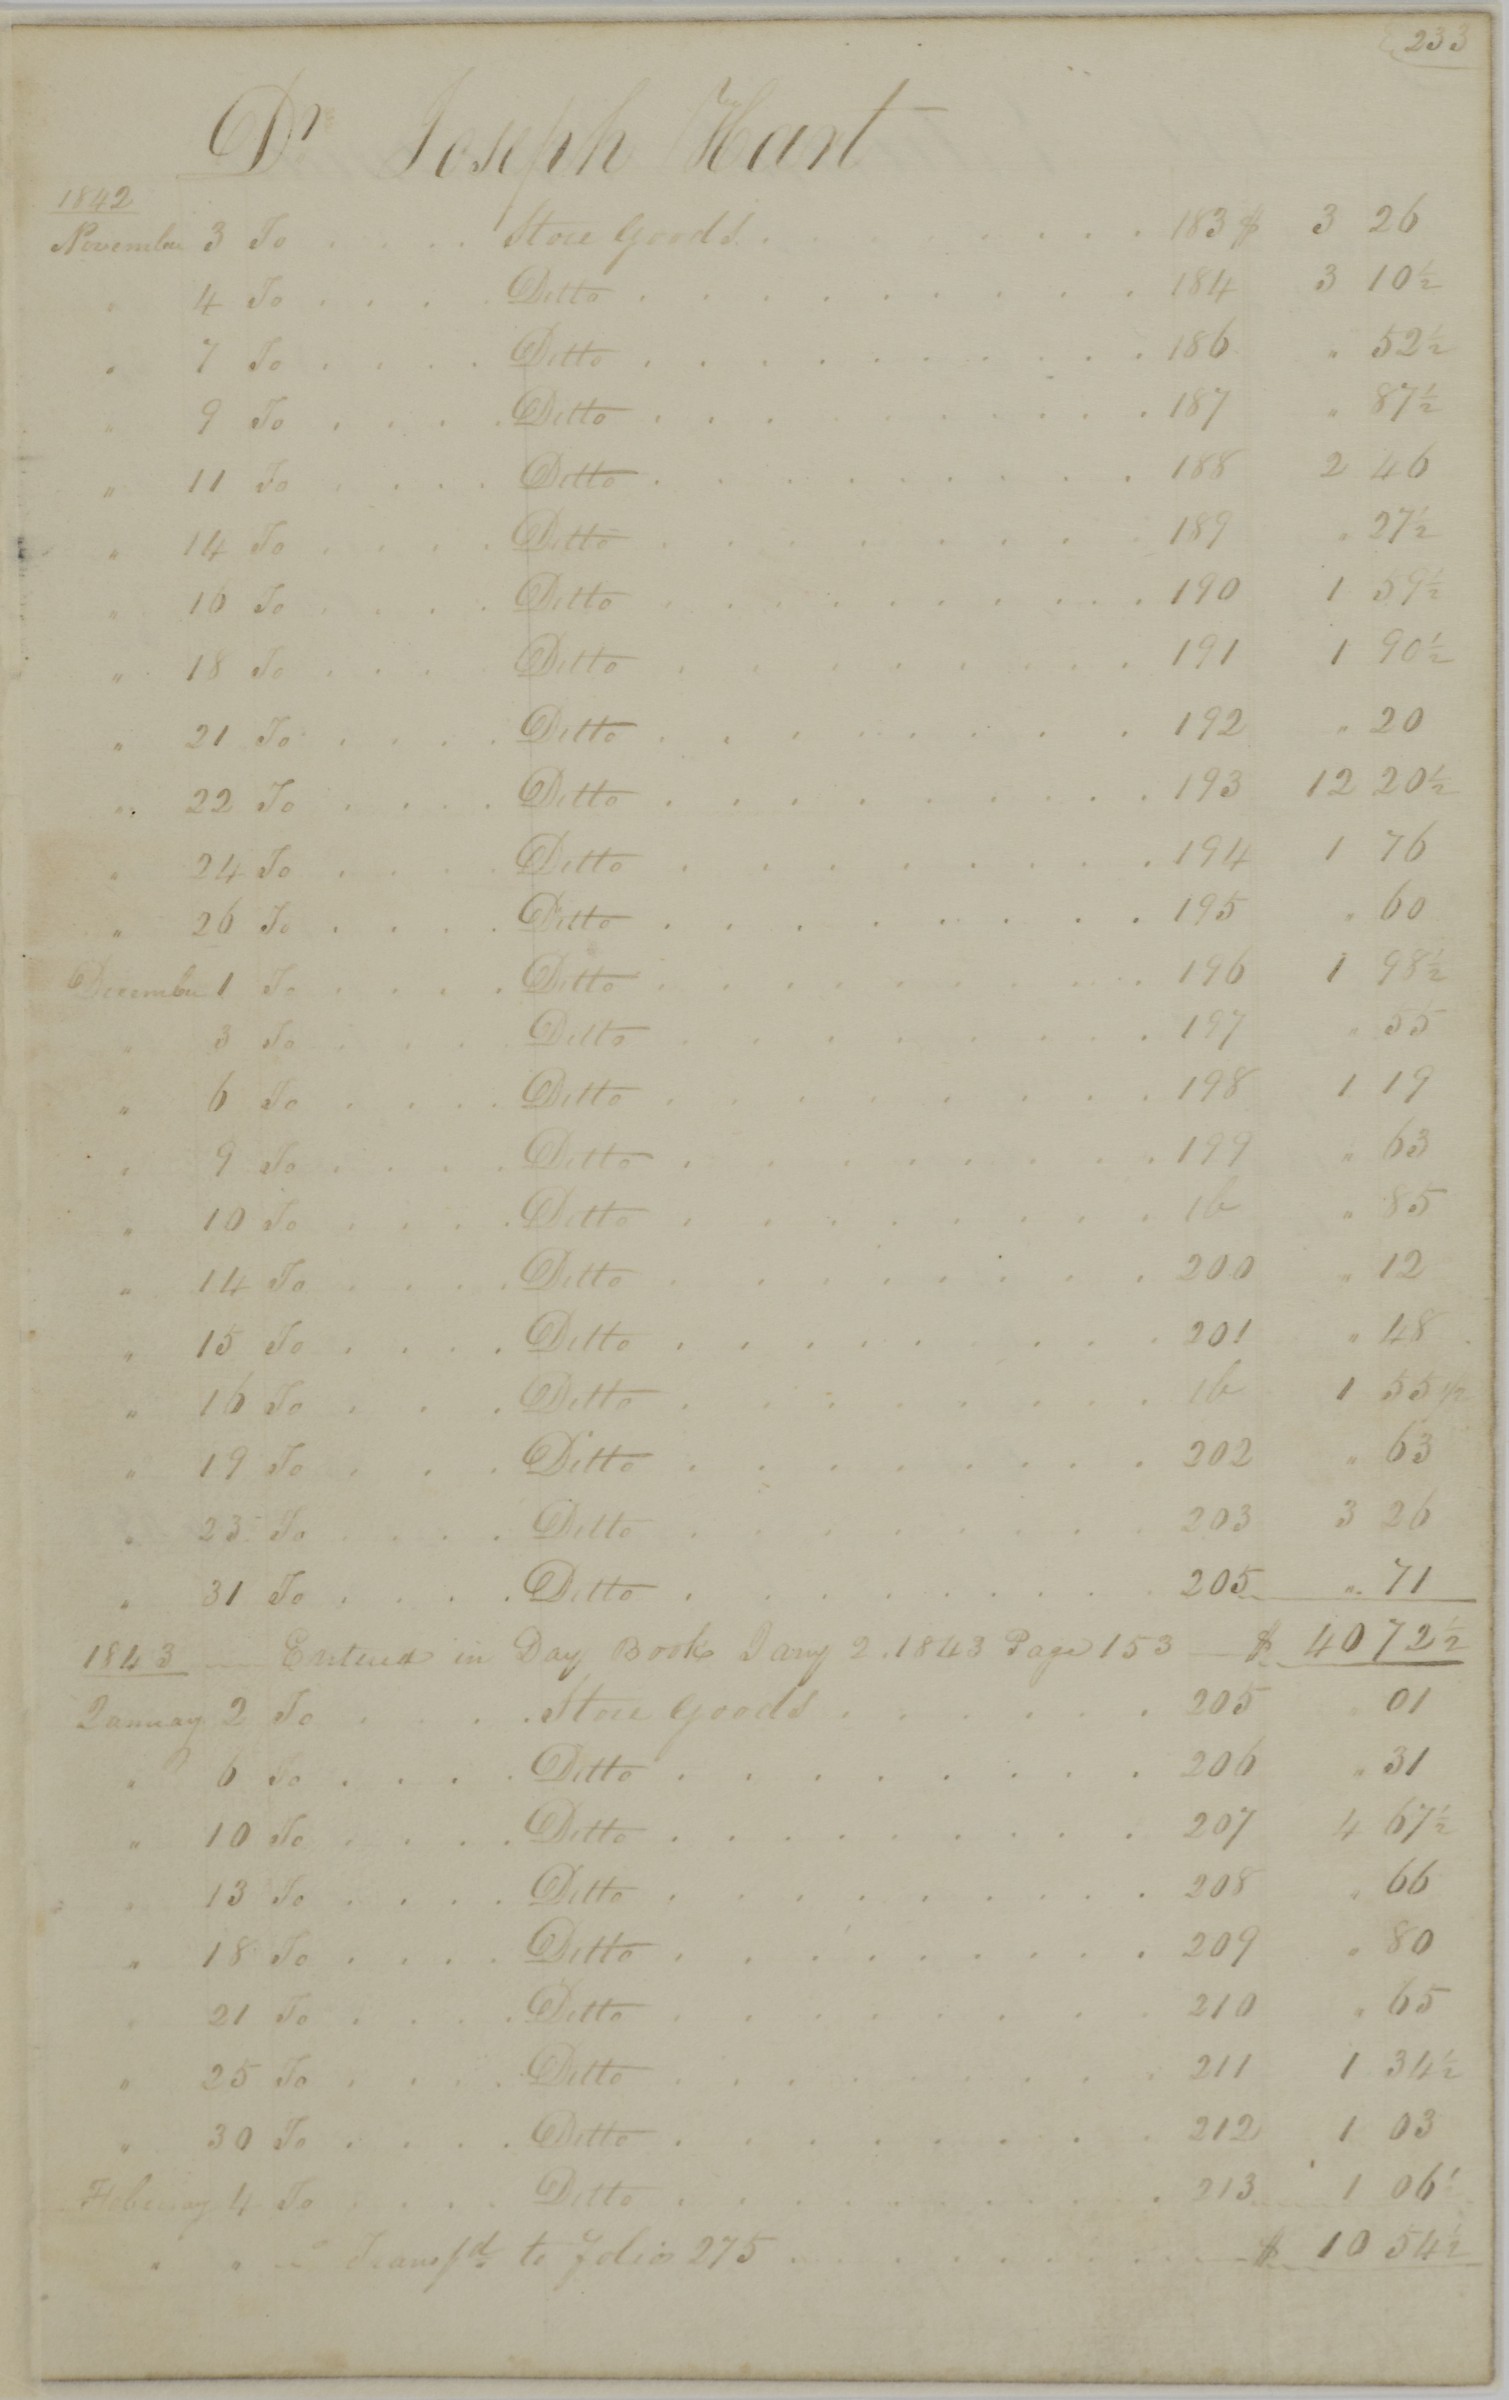 233
Dr Joseph Hart
1842
November 3 To . . . . Store Goods . . . . . . . . . 183 $ 3 26
" 4 To . . . . Ditto . . . . . . . . . 184 3 10½
" 7 To . . . . Ditto . . . . . . . . . 186 " 52½
" 9 To . . . . Ditto . . . . . . . . . 187 " 87½
" 11 To . . . . Ditto . . . . . . . . . 188 2 46
" 14 To . . . . Ditto . . . . . . . . . 189 " 27½
" 16 To . . . . Ditto . . . . . . . . . 190 1 59½
" 18 To . . . . Ditto . . . . . . . . . 191 1 90½
" 21 To . . . . Ditto . . . . . . . . . 192 " 20
" 22 To . . . . Ditto . . . . . . . . . 193 12 20½
" 24 To . . . . Ditto . . . . . . . . . 194 1 76
" 26 To . . . . Ditto . . . . . . . . . 195 " 60
December 1 To . . . . Ditto . . . . . . . . . 196 1 98½
" 3 To . . . . Ditto . . . . . . . . . 197 " 55
" 6 To . . . . Ditto . . . . . . . . . 198 1 19
" 9 To . . . . Ditto . . . . . . . . . 199 " 63
" 10 To . . . . Ditto . . . . . . . . . ib " 85
" 14 To . . . . Ditto . . . . . . . . . 200 " 12
" 15 To . . . . Ditto . . . . . . . . . 201 " 48
" 16 To . . . . Ditto . . . . . . . . . ib 1 55 1/2
" 19 To . . . . Ditto . . . . . . . . . 202 " 63
" 23 To . . . . Ditto . . . . . . . . . 203 3 26
" 31 To . . . . Ditto . . . . . . . . . 205 " 71
1843 Entered in Day Book Jany 2. 1843 Page 153 $ 40 72½
January 2 To . . . . Store Goods . . . . . . 205 " 01
" 6 To . . . . Ditto . . . . . . . . . 206 " 31
" 10 To . . . . Ditto . . . . . . . . . 207 4 67½
" 13 To . . . . Ditto . . . . . . . . . 208 " 66
" 18 To . . . . Ditto . . . . . . . . . 209 " 80
" 21 To . . . . Ditto . . . . . . . . . 210 " 65
" 25 To . . . . Ditto . . . . . . . . . 211 1 34½
" 30 To . . . . Ditto . . . . . . . . . 212 1 03
February 4 To . . . . Ditto . . . . . . . . . 213 1 06½
" " Transfd to folio 275 . . . . . . . . . $ 10 54½